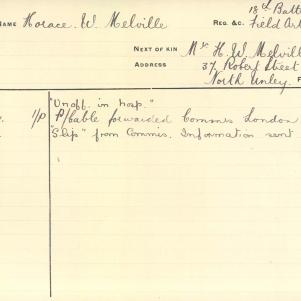 NAME Horace. W. Melville
REG. &C. 18th Batt
Field Art
NEXT OF KIN Mr H. W. Melvill
ADDRESS 37 Robert Street
North Unley.
"Unoff. in hosp."
1/P P/bable forwarded Commis London
"Slip" from Commis. Information sent